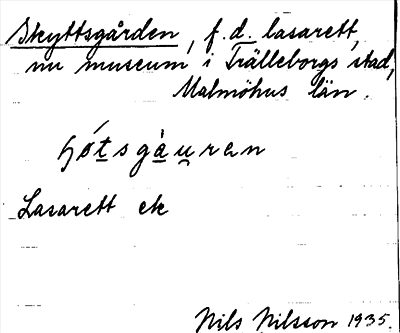 Skyttsgården, f.d. lasarett,
nu museum i Trälleborgs stad,
Malmöhus län.
Lasarett etc
Nils Nilsson 1935.